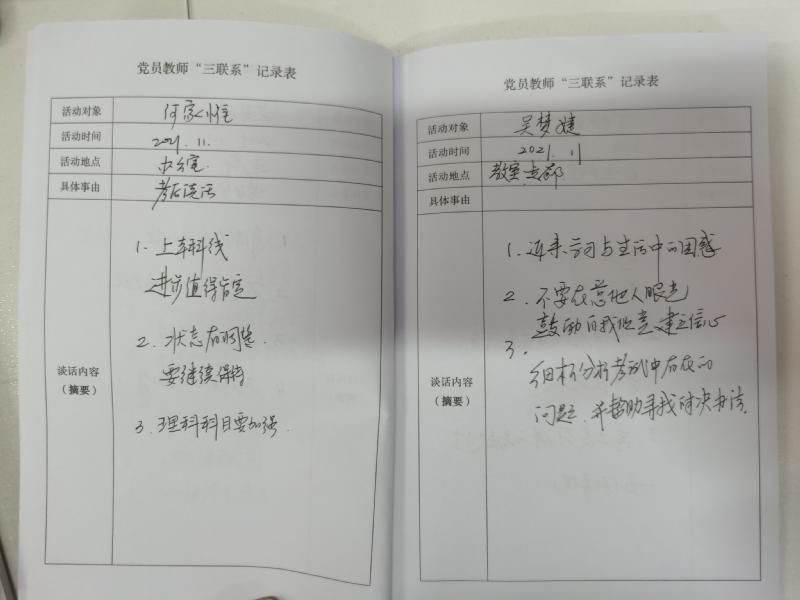 党员教师“三联系”记录表
活动对象 何家
活动时间 2021.11.
活动地点 办公室
具体事由 考后谈话
谈话内容
（摘要）
1. 上本科线
进步值得肯定
2. 状态有调整.
要继续保持
3. 理科科目要加强.
党员教师“三联系”记录表
活动对象 吴梦婕
活动时间 2021.11
活动地点 教室走廊
具体事由
谈话内容
（摘要）
1. 近来学习与生活中的困惑
2. 不要在意他人眼光
鼓励自我 建立信心
3.
细析分析考试中存在的
问题. 并帮助寻找解决办法.